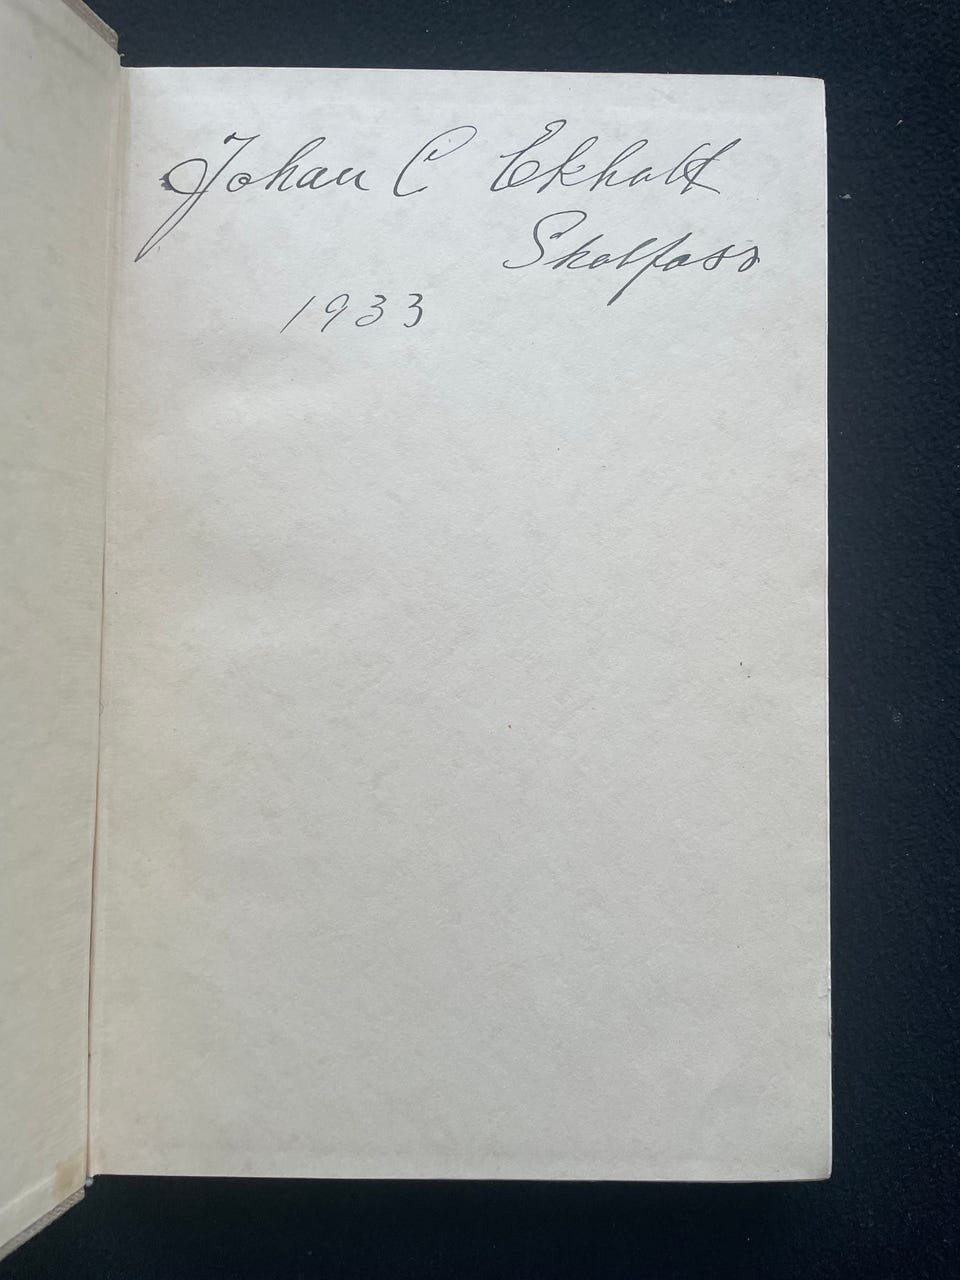 Johan C Ekholt
Skotfoss
1933